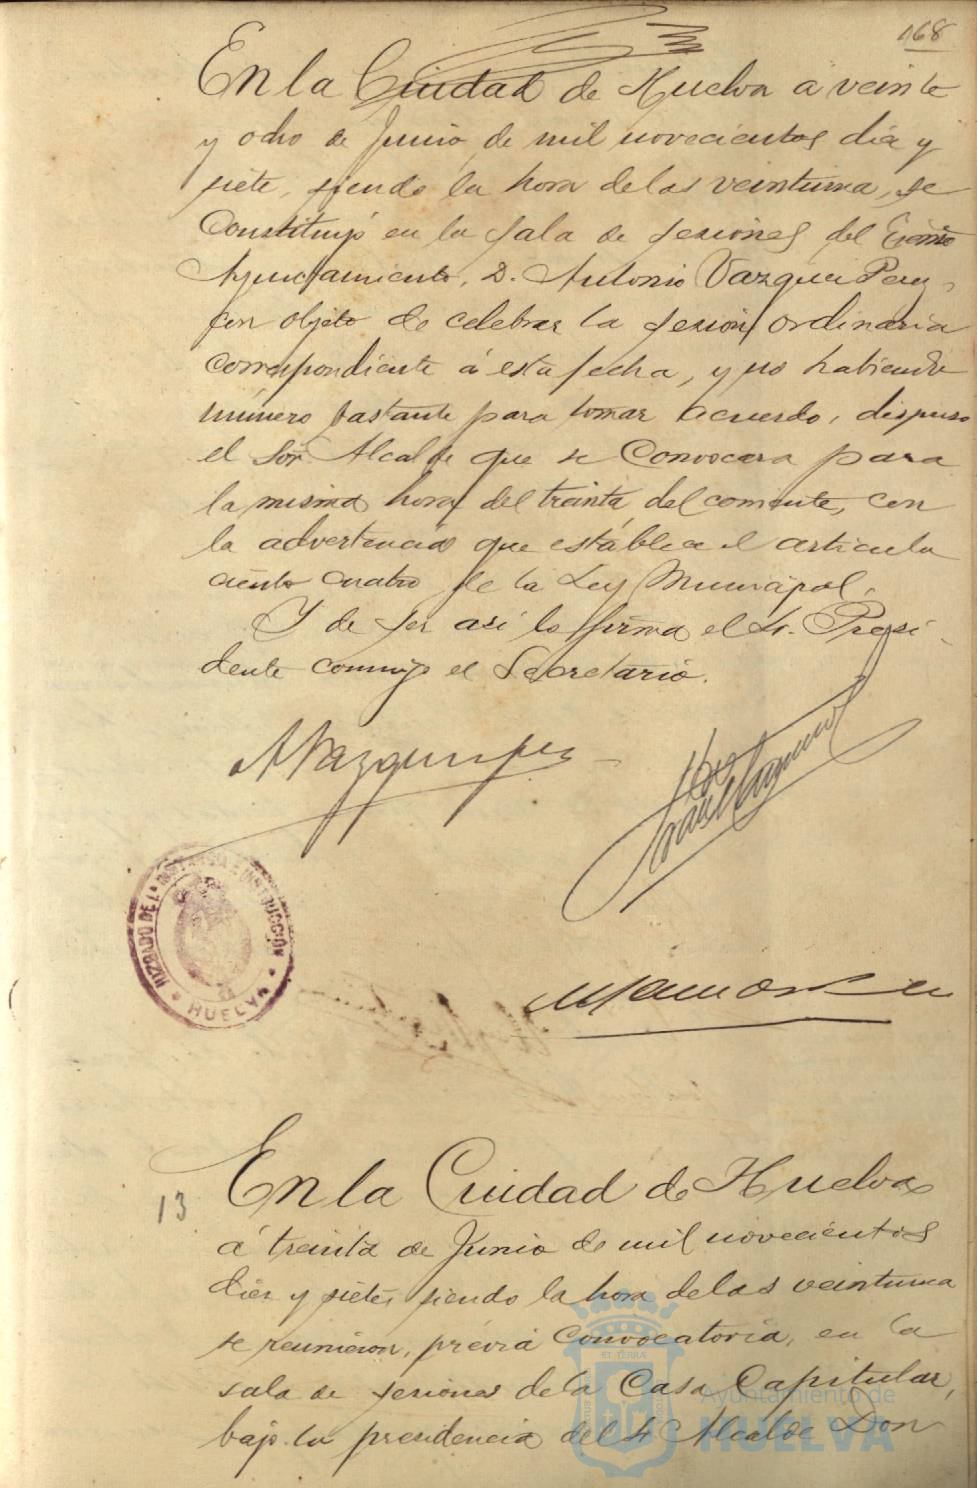 168
En la Ciudad de Huelva a veinte
y ocho de Junio de mil novecientos diez y
siete, siendo la hora de las veintiuna, se
Constituyó en la sala de sesiones del Excmo
Ayuntamiento, D. Antonio Vazquez Perez,
con objeto de celebrar la sesion ordinaria
correspondiente á esta fecha, y no habiendo
número bastante para tomar acuerdo, dispuso
el Sor. Alcalde que se Convocara para
la misma hora del treinta del corriente, con
la advertencia que establece el articulo
ciento cuatro de la Ley Municipal.
Y de ser asi lo firma el Sr. Presi-
dente conmigo el Secretario.
A Vazquez Perez
JUZGADO DE 1ª INSTANCIA E INSTRUCCIÓN
* HUELVA *
13
En la Ciudad de Huelva
á treinta de Junio de mil novecientos
diez y siete, siendo la hora de las veintiuna
se reunieron, prévia Convocatoria, en la
sala de sesiones de la Casa Capitular,
bajo la presidencia del Sr Alcalde Don
Ayuntamiento de
HUELVA